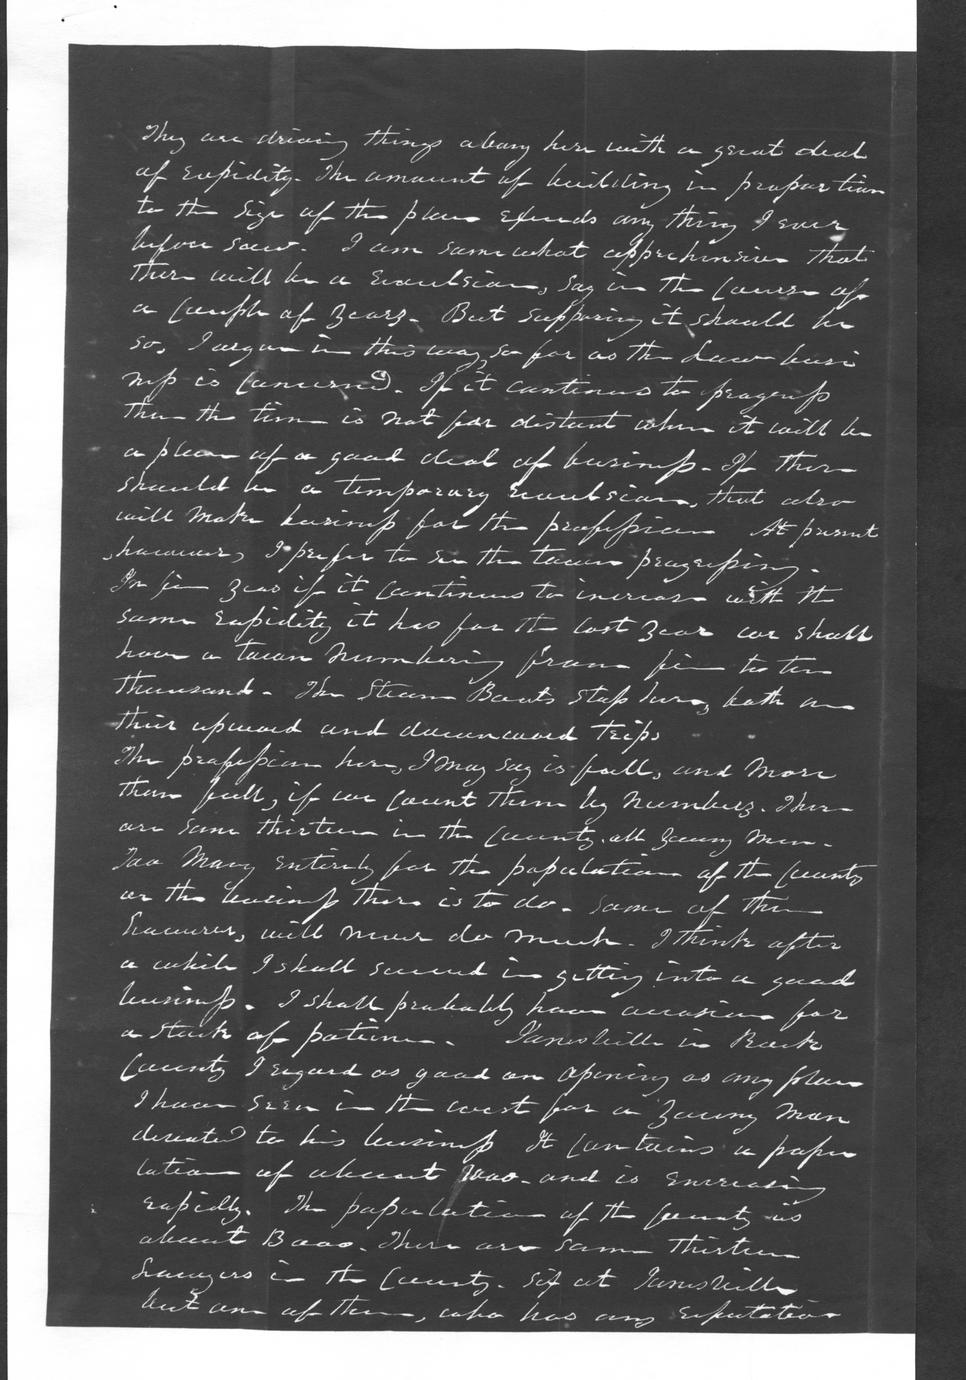 They are driving things along here with a great deal
of rapidity. The amount of building in proportion
to the size of the place exceeds any thing I ever
before saw. I am somewhat apprehensive that
there will be a revulsion, say in the course of
a couple of years. But supposing it should be
so, I argue in this way, so far as the Law busi
ness is concerned. If it continues to progress
then the time is not far distant when it will be
a place of a good deal of business. If there
should be a temporary revulsion, that also
will make business for the profession At present
, however, I prefer to see the town progressing.
In five years if it continues to increase with the
same rapidity it has for the last year we shall
have a town numbering from five to ten
thousand. The Steam Boats stop here, both on
their upward and downward trips
The profession here, I may say is full, and more
than full, if we count them by numbers. There
are some thirteen in the county, all young men.
Too many entirely for the population of the county
or the business there is to do. Some of them
however, will never do much. I think after
a while I shall succeed in getting into a good
business. I shall probably have occasion for
a stock of patience. Janesville in Rock
County I regard as good an opening as any place
I have seen in the west for a young man
devoted to his business It contains a popu
lation of about and is encreasing
rapidly. The population of the county is
about There are some thirteen
Lawyers in the County. Six at Janesville
but one of them, who has any reputation